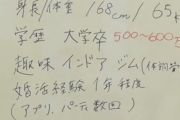 身長/体重 168cm/65k
学歴 大学卒 500〜600万
趣味 インドア ジム(体
婚活経験 1年程度
(アプリ、パーティ数回)